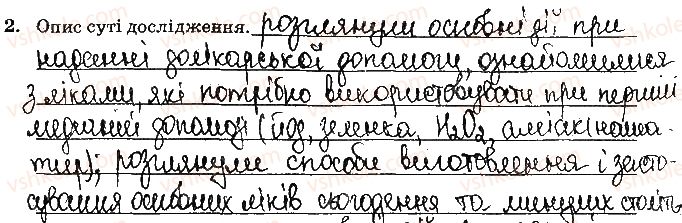 2. Опис суті дослідження. розглянули основні дії при
наданні долікарської допомоги, ознайомилися
з ліками, які потрібно використовувати при першій
медичній допомозі (йод, зеленка, H₂O₂, аміак (наша-
тир); розглянули способи виготовлення і засто-
сування основних ліків сьогодення та минулих століть